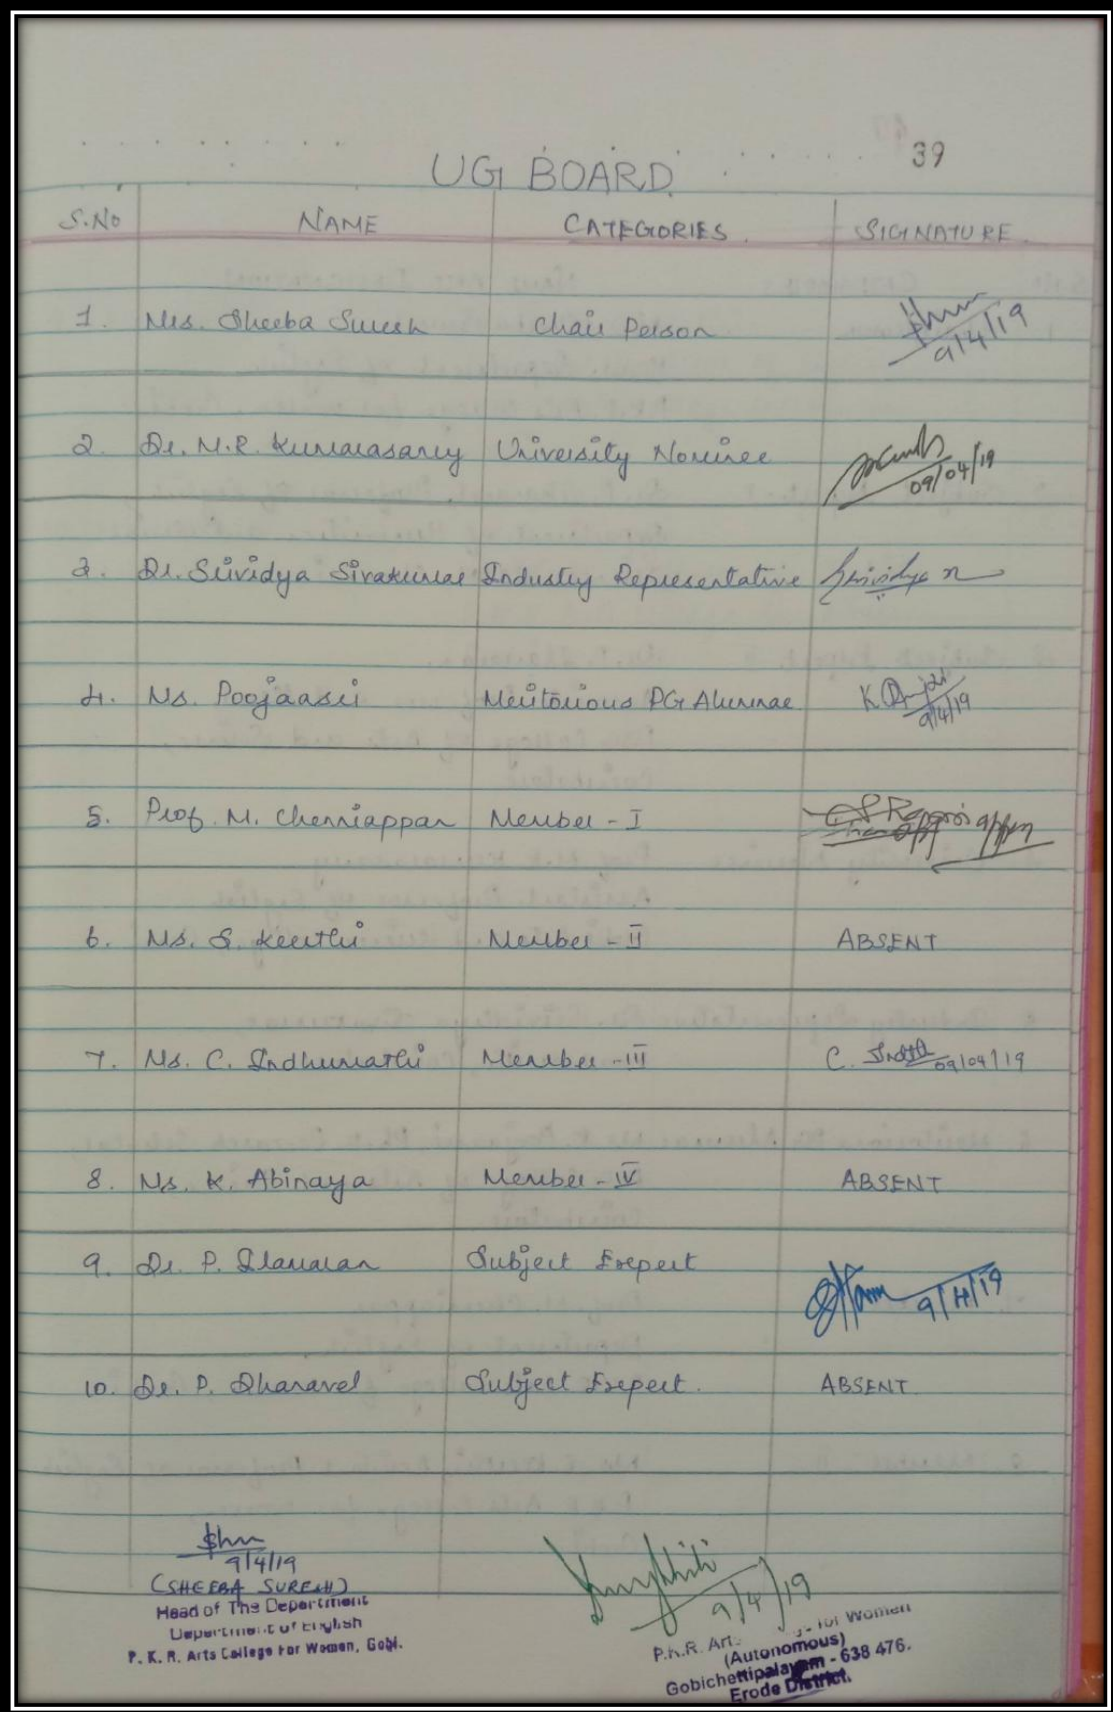 39
UG BOARD
S.No NAME CATEGORIES SIGNATURE
1. Mrs. Sheeba Suresh Chair Person 9/4/19
2. Dr. M.R. Kumarasamy University Nominee 09/04/19
3. Dr. Srividya Sivakumar Industry Representative Srividya
4. Ms. Poojaasri Meritorious PG Alumnae K 9/4/19
5. Prof. M. Chenniappan Member - I
6. Ms. S. Keerthi Member - II ABSENT
7. Ms. C. Indhumathi Member - III C. 09/04/19
8. Ms. K. Abinaya Member - IV ABSENT
9. Dr. P. Elamaran Subject Expert 9/4/19
10. Dr. P. Dhanavel Subject Expert. ABSENT
9/4/19
(SHEEBA SURESH)
Head of The Department
Department of English
P. K. R. Arts College For Women, Gobi.
9/4/19
P.K.R. Art for Women
(Autonomous)
Gobichettipalayam - 638 476.
Erode District.